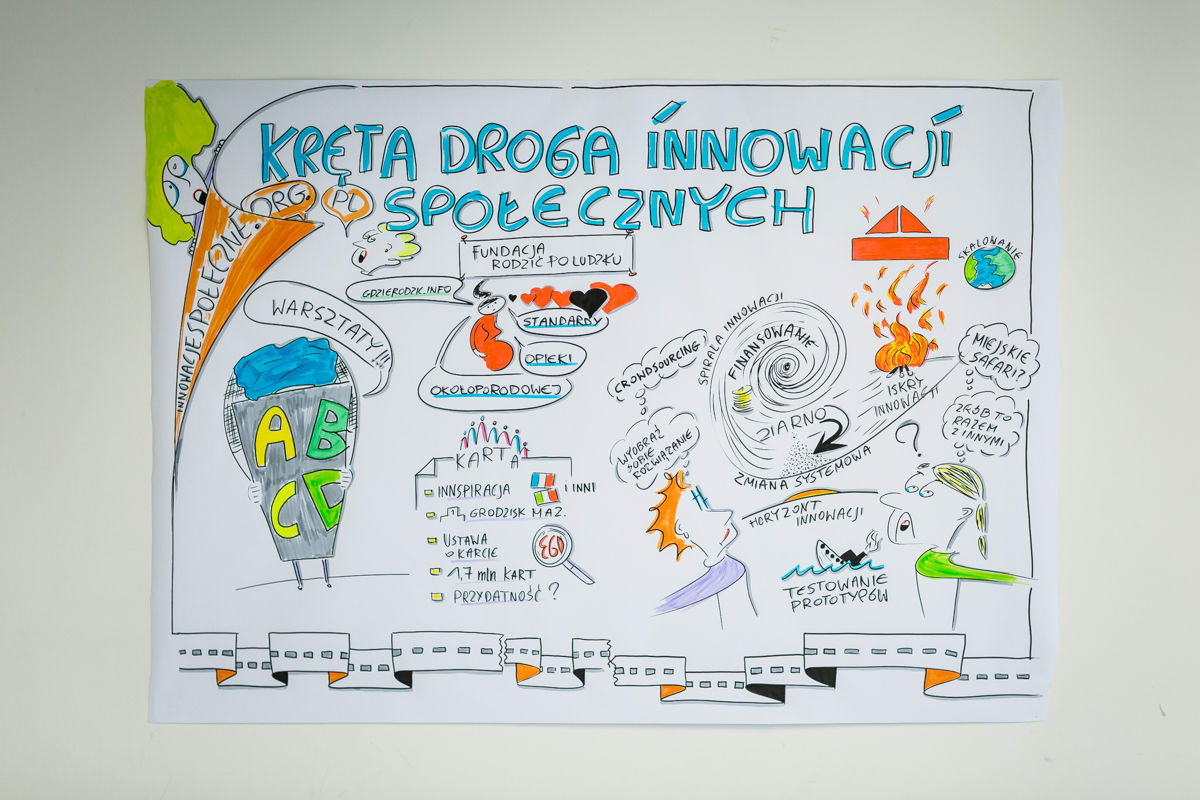 KRĘTA DROGA INNOWACJI
SPOŁECZNYCH
INNOWACJESPOŁECZNE.ORG.PL
WARSZTATY!!!
A B
C D
FUNDACJA
RODZIĆ PO LUDZKU
GDZIERODZIC.INFO
STANDARDY
OPIEKI
OKOŁOPORODOWEJ
KARTA
INNSPIRACJA
I INNI
GRODZISK MAZ.
USTAWA
O KARCIE
1,7 mln KART
PRZYDATNOŚĆ?
EGO
CROWDSOURCING
WYOBRAŹ
SOBIE
ROZWIĄZANIE
SPIRALA INNOWACJI
FINANSOWANIE
ZIARNO
ZMIANA SYSTEMOWA
ISKRY
INNOWACJI
SKALOWANIE
MIEJSKIE
SAFARI?
ZRÓB TO
RAZEM
Z INNYMI
?
HORYZONT
INNOWACJI
TESTOWANIE
PROTOTYPÓW